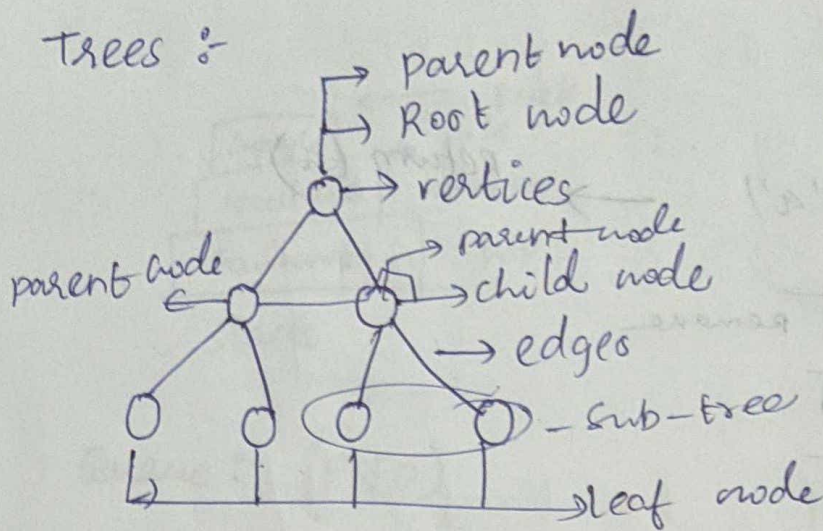 Trees :-
parent node
Root node
rertices
parent node
parent node
child node
edges
- Sub-tree
leaf node